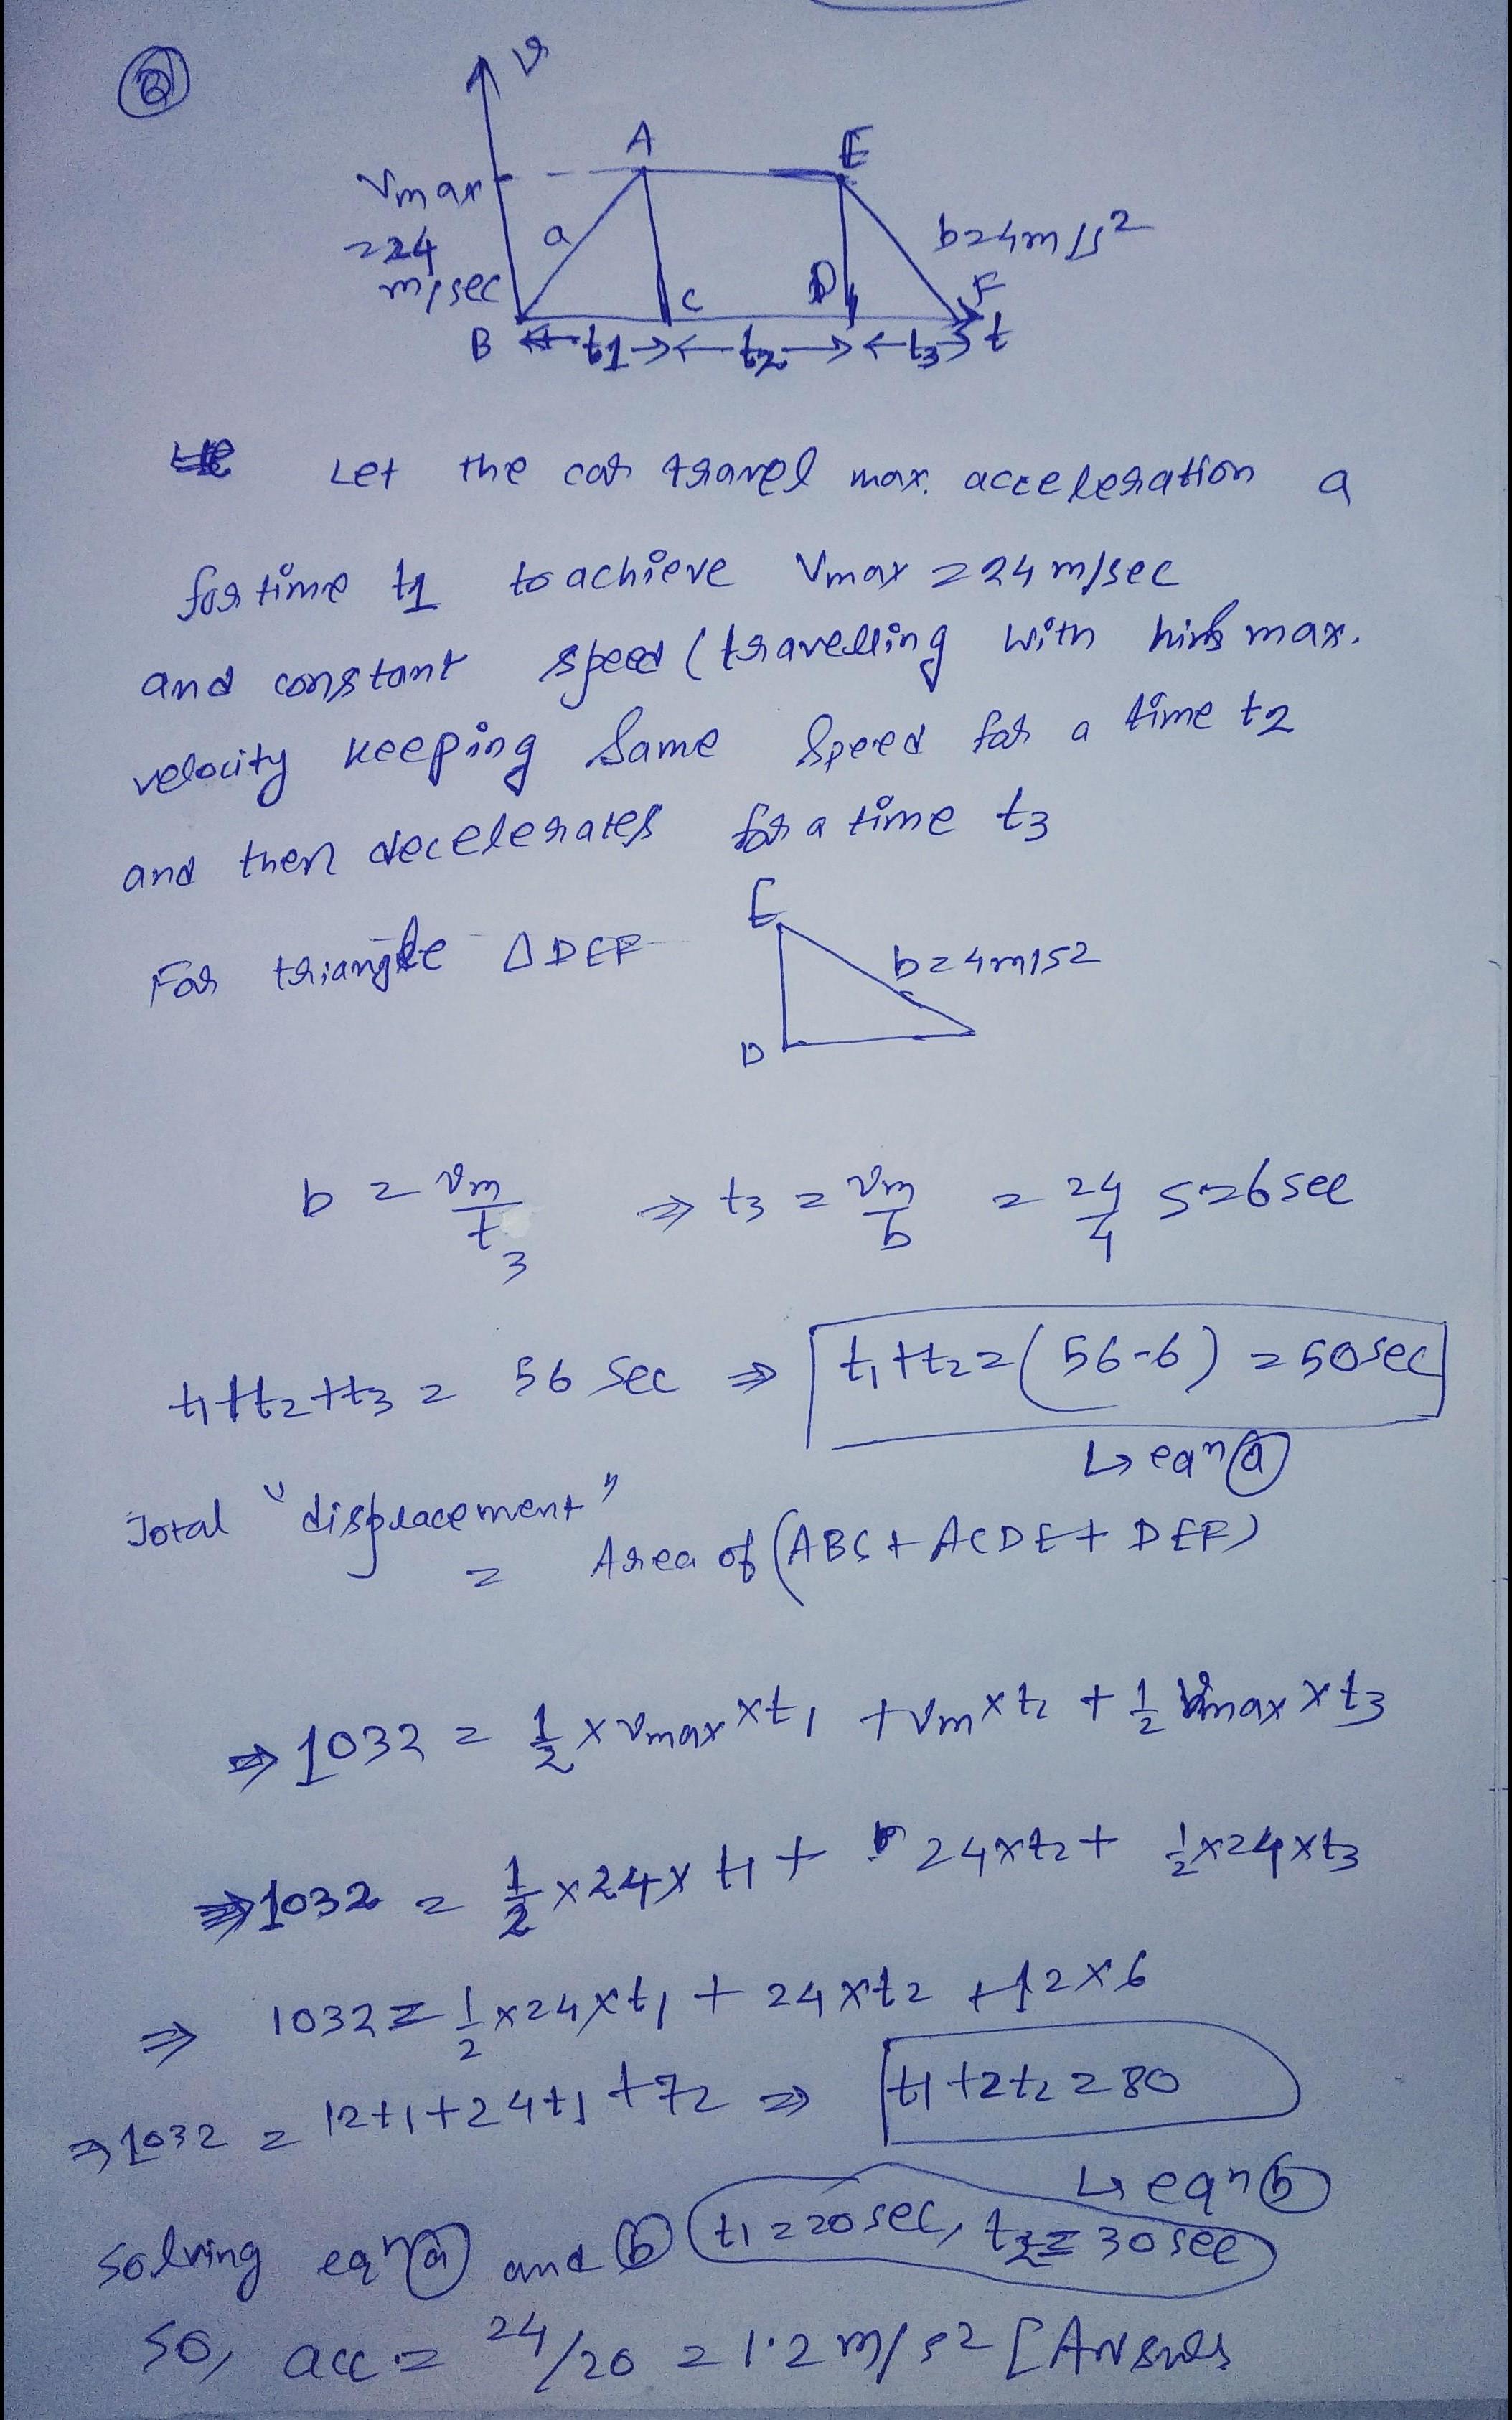 2
v
A E
Vmax
= 24
m/sec
a
b=4m/s²
B C D F
t1 t2 t3 t
Let the car travel max. acceleration a
for time t1 to achieve Vmax = 24 m/sec
and constant speed (travelling with max.
velocity keeping same speed for a time t2
and then decelerates for a time t3
For triangle ΔDEF
E
b=4m/s2
D
b = vm/t3 ⇒ t3 = vm/b = 24/4 s=6sec
t1+t2+t3 = 56 sec ⇒ t1+t2=(56-6) = 50sec
↳ eqn (a)
Total "displacement"
= Area of (ABC + ACDE + DEF)
⇒ 1032 = 1/2 × vmax × t1 + vm × t2 + 1/2 vmax × t3
⇒ 1032 = 1/2 × 24 × t1 + 24×t2 + 1/2×24×t3
⇒ 1032 = 1/2 ×24×t1 + 24×t2 +12×6
⇒ 1032 = 12t1+24t1+72 ⇒ t1+2t2=80
↳ eqn (b)
solving eqn (a) and (b) t1=20sec, t2= 30sec
so, acc = 24/20 = 1.2 m/s2 [Answer